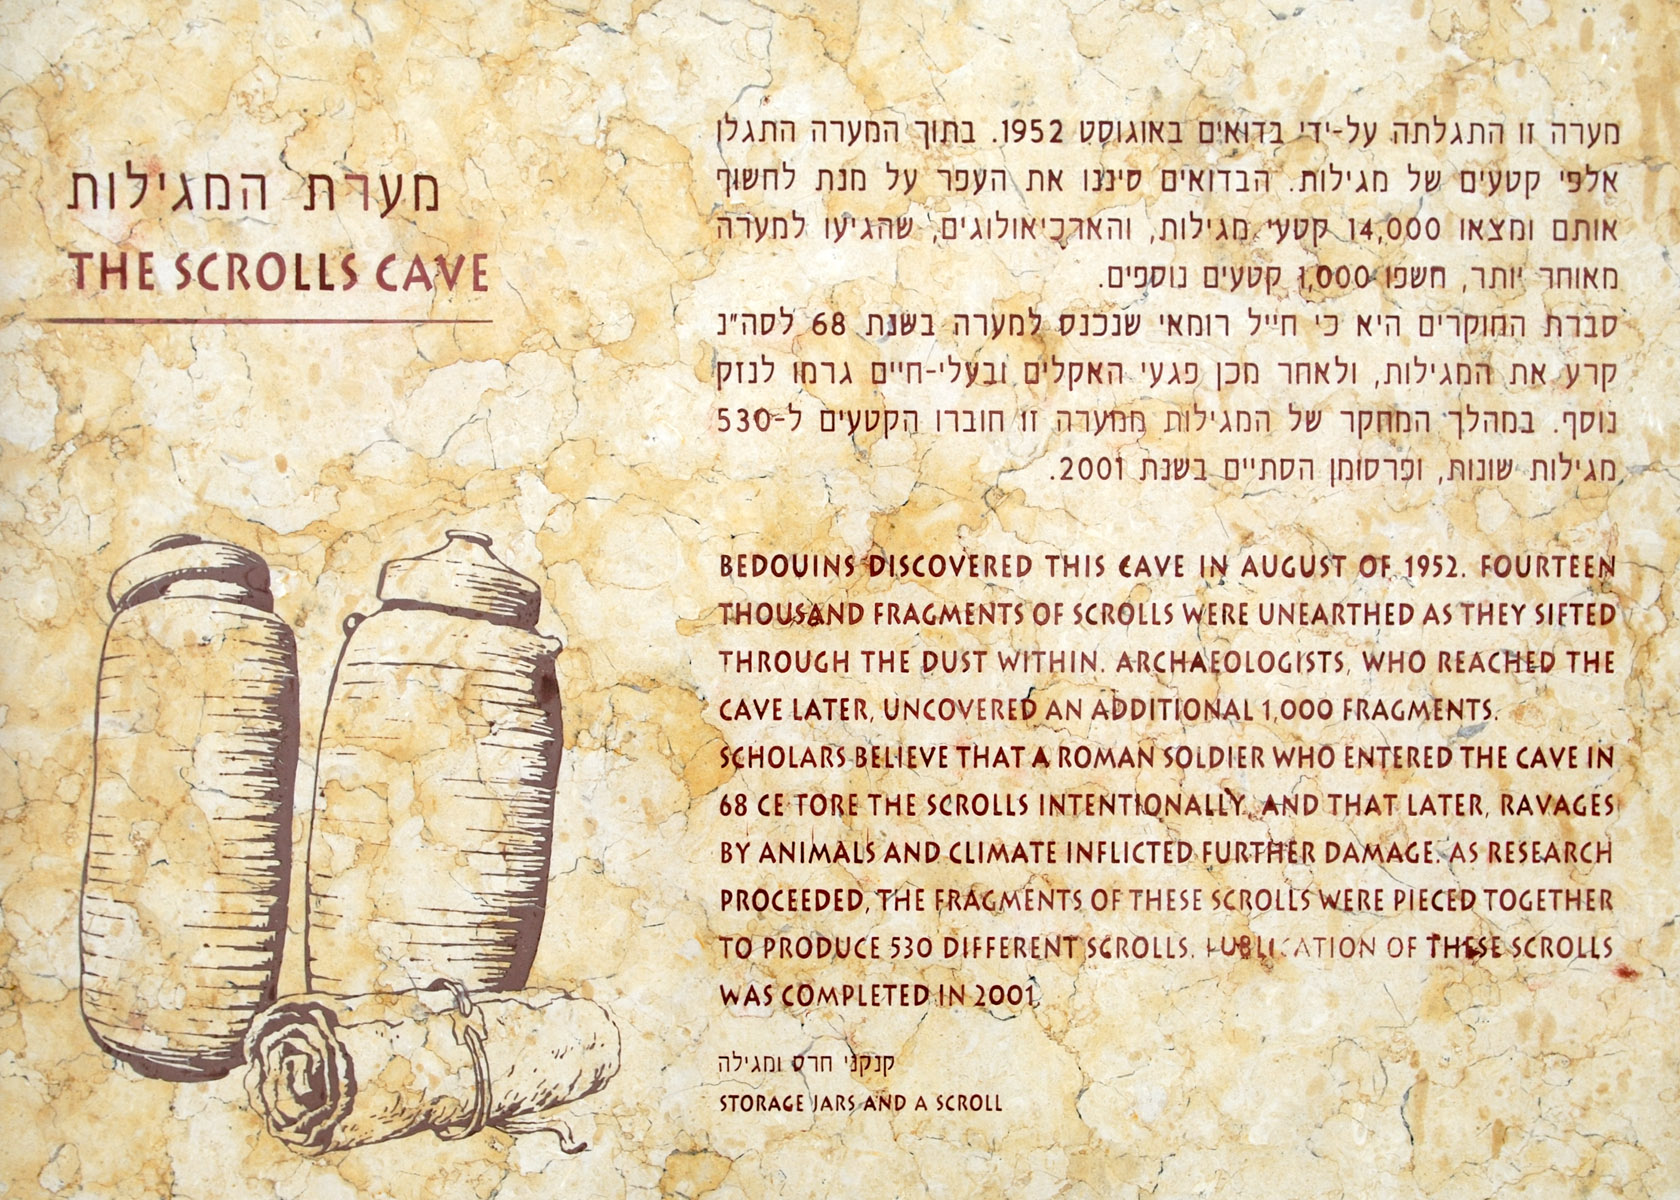 מערת המגילות
THE SCROLLS CAVE
מערה זו התגלתה על-ידי בדואים באוגוסט 1952. בתוך המערה התגלו
אלפי קטעים של מגילות. הבדואים סיננו את העפר על מנת לחשוף
אותם ומצאו 14,000 קטעי מגילות, והארכיאולוגים, שהגיעו למערה
מאוחר יותר, חשפו 1,000 קטעים נוספים.
סברת החוקרים היא כי חייל רומאי שנכנס למערה בשנת 68 לסה"נ
קרע את המגילות, ולאחר מכן פגעי האקלים ובעלי-חיים גרמו לנזק
נוסף. במהלך המחקר של המגילות ממערה זו חוברו הקטעים ל-530
מגילות שונות, ופרסומן הסתיים בשנת 2001.
BEDOUINS DISCOVERED THIS CAVE IN AUGUST OF 1952. FOURTEEN
THOUSAND FRAGMENTS OF SCROLLS WERE UNEARTHED AS THEY SIFTED
THROUGH THE DUST WITHIN. ARCHAEOLOGISTS, WHO REACHED THE
CAVE LATER, UNCOVERED AN ADDITIONAL 1,000 FRAGMENTS.
SCHOLARS BELIEVE THAT A ROMAN SOLDIER WHO ENTERED THE CAVE IN
68 CE TORE THE SCROLLS INTENTIONALLY, AND THAT LATER, RAVAGES
BY ANIMALS AND CLIMATE INFLICTED FURTHER DAMAGE. AS RESEARCH
PROCEEDED, THE FRAGMENTS OF THESE SCROLLS WERE PIECED TOGETHER
TO PRODUCE 530 DIFFERENT SCROLLS. PUBLICATION OF THESE SCROLLS
WAS COMPLETED IN 2001.
קנקני חרס ומגילה
STORAGE JARS AND A SCROLL